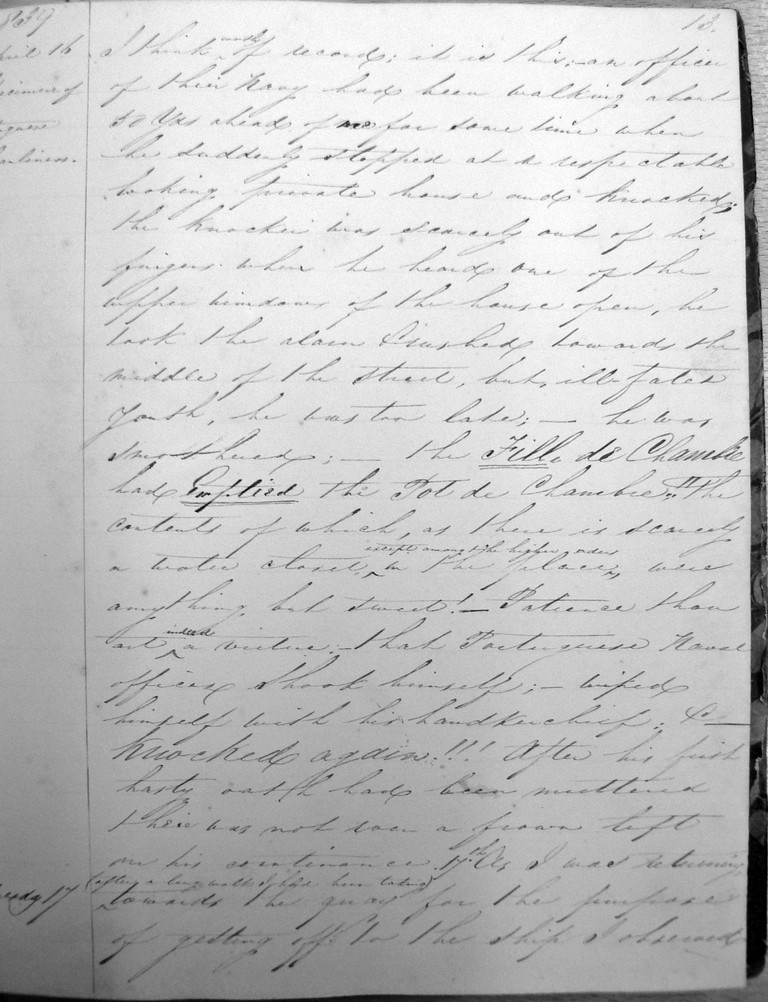 1839
13.
April 16
I think worth of record; it is this:- an officer
of their Navy had been walking about
50 Yds ahead of me for some time when
he suddenly stopped at a respectable
looking private house and knocked;
the knocker was scarcely out of his
fingers when he heard one of the
upper windows of the house open, he
took the alarm & rushed towards the
middle of the street, but, ill-fated
youth, he was too late; — he was
smothered; — the Fille de Chambre
had Emptied the Pot de Chambre "the
contents of which, as there is scarcely
a water closet, except amongst the higher orders
in the place, were
anything but sweet! — Patience thou
art indeed a virtue; - that Portuguese Naval
officer shook himself; — wiped
himself with his handkerchief; & —
knocked again!!! After his first
hasty oath had been muttered
there was not even a frown left
on his continance. 17th As I was returning
(after a long walk I had been taking)
17 towards the quay for the purpose
of getting off to the ship I observed